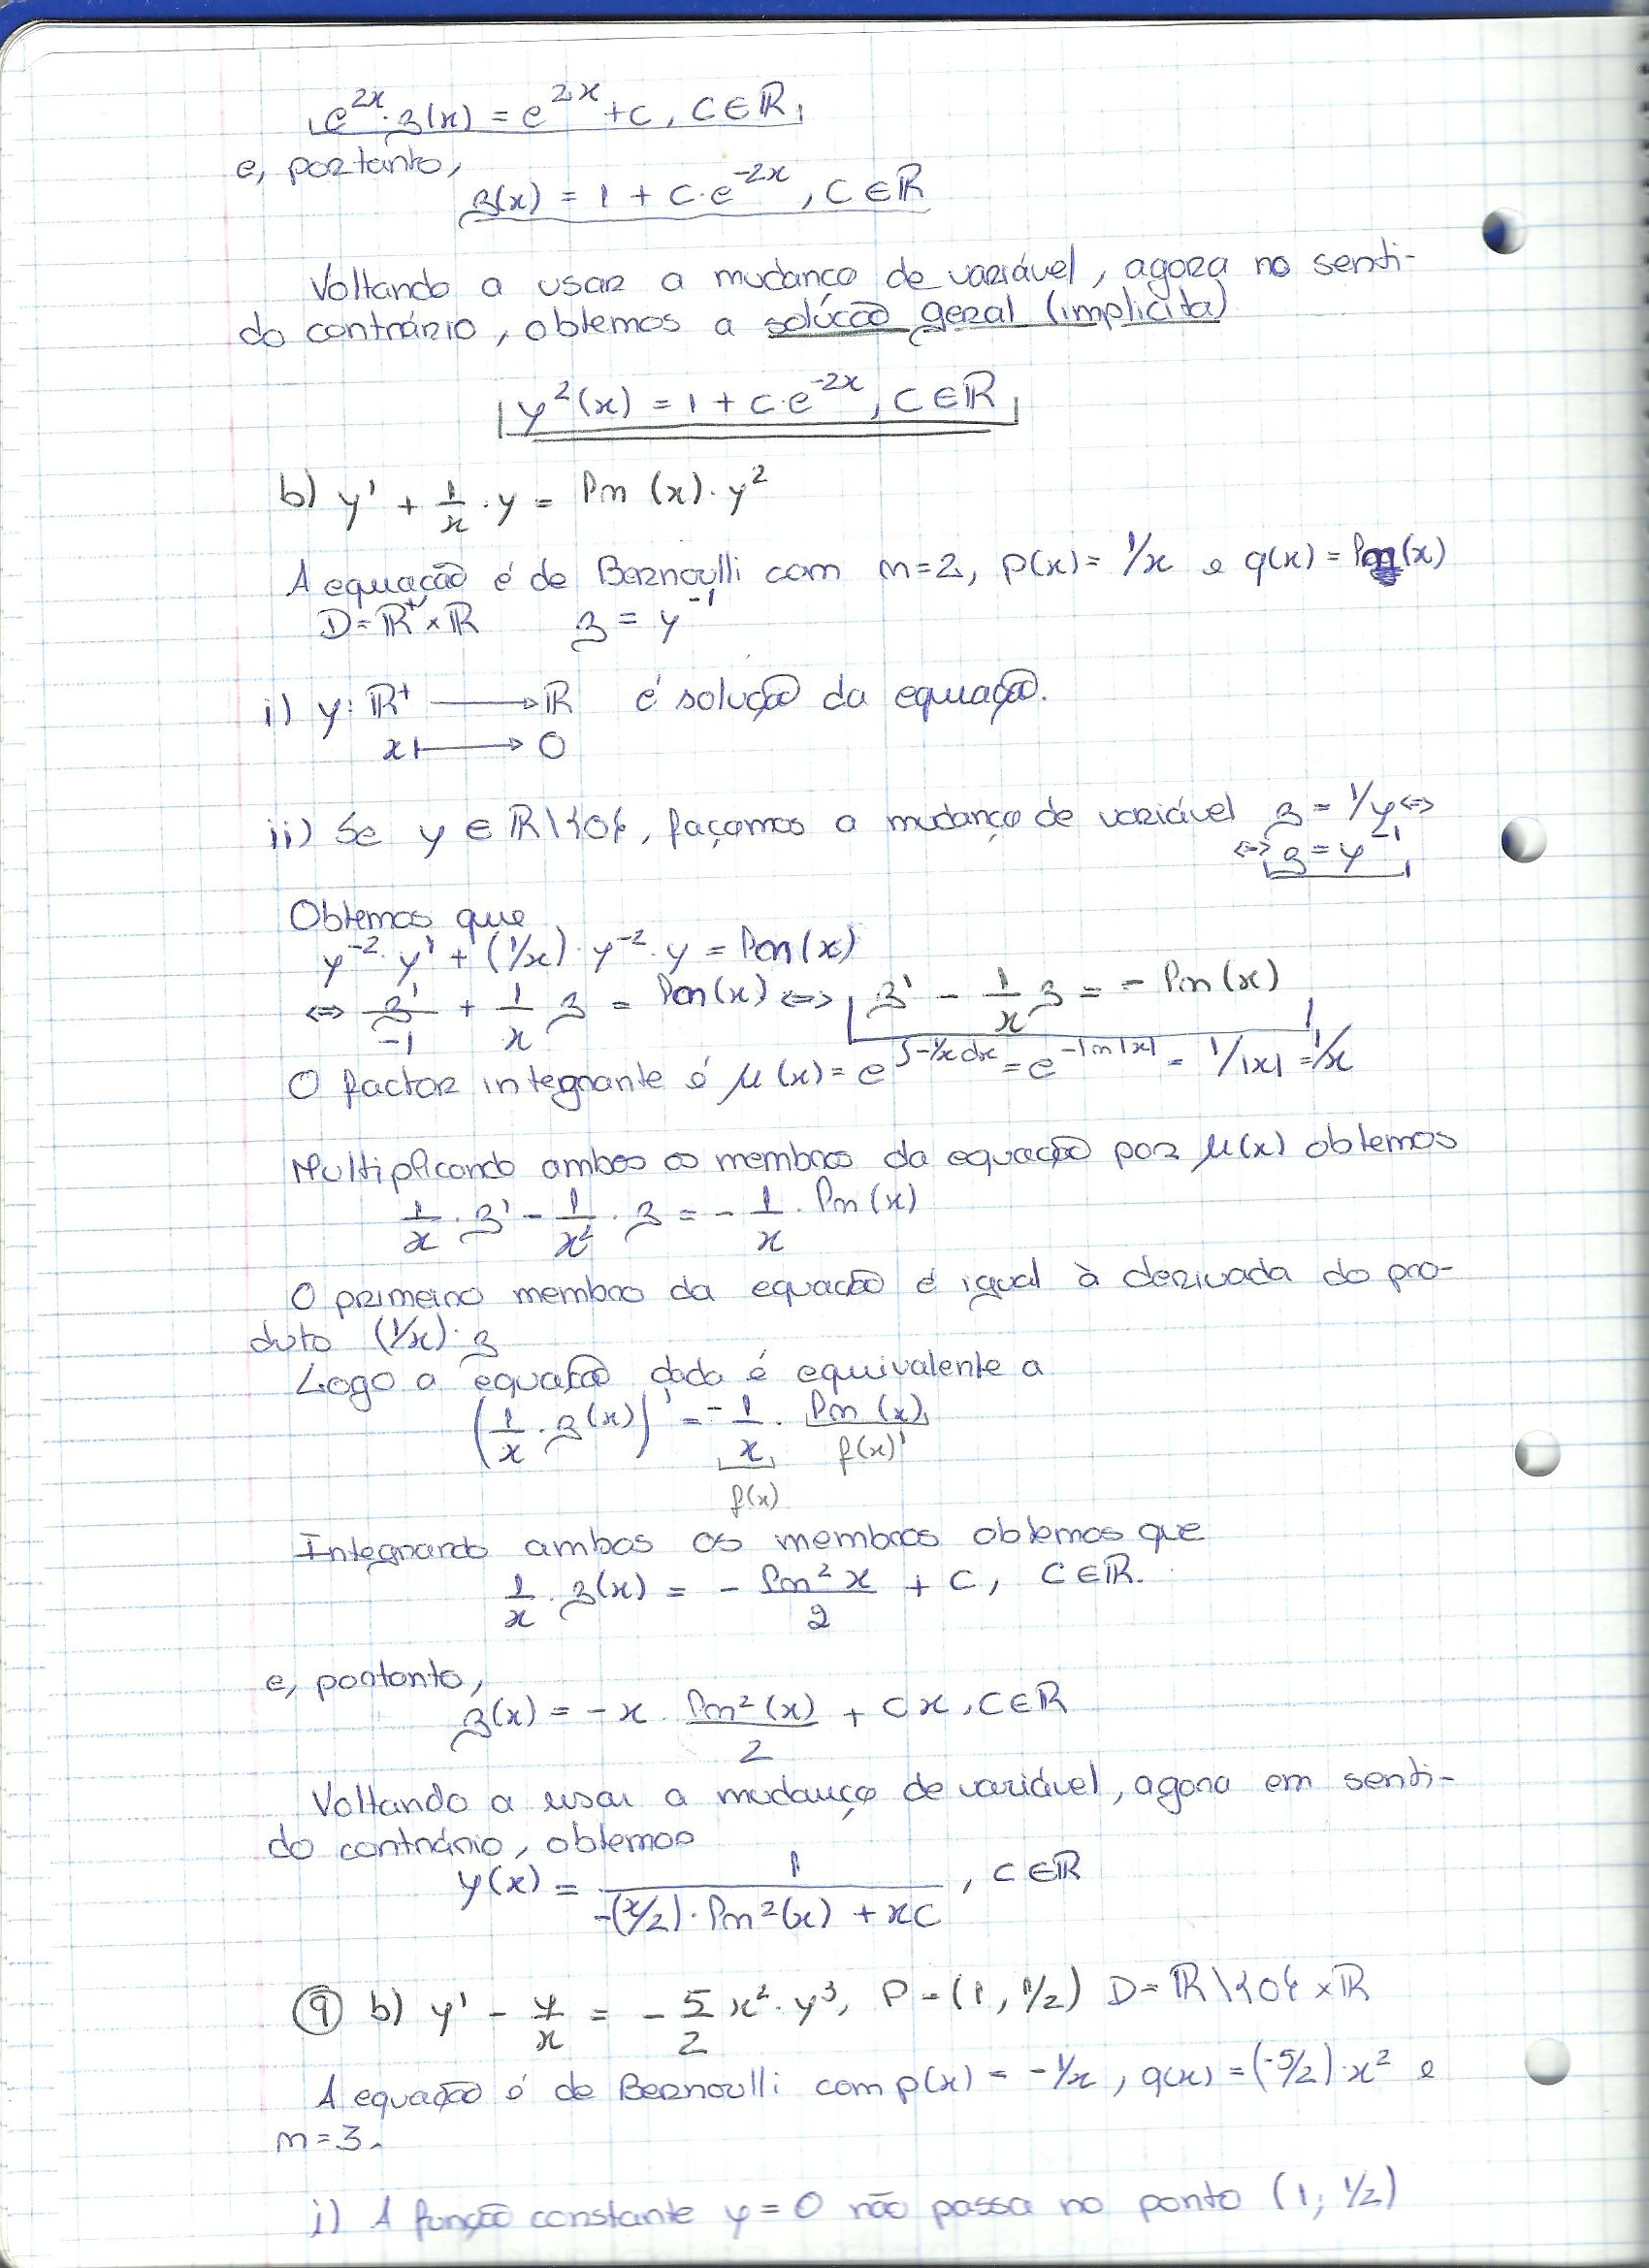 e^{2x}·z(x) = e^{2x} + C, C∈ℝ
e, portanto,
z(x) = 1 + C·e^{-2x}, C∈ℝ
Voltando a usar a mudança de variável, agora no senti-
do contrário, obtemos a solução geral (implícita)
y²(x) = 1 + C·e^{-2x}, C∈ℝ
b) y' + 1/x · y = ln(x)·y²
A equação é de Bernoulli com n=2, p(x) = 1/x e q(x) = ln(x)
D = ℝ⁺×ℝ    z = y⁻¹
i) y: ℝ⁺ → ℝ é solução da equação.
x ↦ 0
ii) Se y ∈ ℝ\{0}, façamos a mudança de variável z = 1/y ⇔
⇔ z = y⁻¹
Obtemos que
y⁻²·y' + (1/x)·y⁻²·y = ln(x)
⇔ z'/-1 + 1/x z = ln(x) ⇔ z' - 1/x z = - ln(x)
O factor integrante é μ(x) = e^{∫-1/x dx} = e^{-ln|x|} = 1/|x| = 1/x
Multiplicando ambos os membros da equação por μ(x) obtemos
1/x · z' - 1/x² · z = - 1/x · ln(x)
O primeiro membro da equação é igual à derivada do pro-
duto (1/x)·z
Logo a equação dada é equivalente a
(1/x · z(x))' = - 1/x · ln(x)
f(x)'
f(x)
Integrando ambos os membros obtemos que
1/x · z(x) = - ln²x/2 + C, C∈ℝ.
e, portanto,
z(x) = -x · ln²(x)/2 + Cx, C∈ℝ
Voltando a usar a mudança de variável, agora em senti-
do contrário, obtemos
y(x) = 1/(-(x/2)·ln²(x) + xC), C∈ℝ
⑨ b) y' - y/x = - 5/2 x²·y³, P = (1, 1/2) D = ℝ\{0}×ℝ
A equação é de Bernoulli com p(x) = -1/x, q(x) = (-5/2)·x² e
n=3.
i) A função constante y = 0 não passa no ponto (1, 1/2)